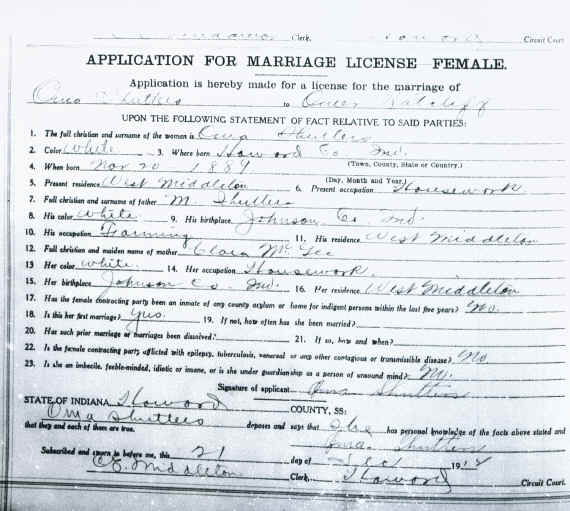 Clerk, Circuit Court
APPLICATION FOR MARRIAGE LICENSE FEMALE.
Application is hereby made for a license for the marriage of
Oma Shutters to Omer Ratcliff
UPON THE FOLLOWING STATEMENT OF FACT RELATIVE TO SAID PARTIES:
1. The full christian and surname of the woman is Oma Shutters
2. Color White 3. Where born Howard Co Ind.
(Town, County, State or Country.)
4. When born Nov 20 1889
(Day, Month and Year.)
5. Present residence West Middleton 6. Present occupation Housework
7. Full christian and surname of father M. Shutters
8. His color White 9. His birthplace Johnson Co. Ind.
10. His occupation Farming 11. His residence West Middleton
12. Full christian and maiden name of mother Clara McGee
13. Her color White. 14. Her occupation Housework.
15. Her birthplace Johnson Co. Ind. 16. Her residence West Middleton
17. Has the female contracting party been an inmate of any county asylum or home for indigent persons within the last five years? No.
18. Is this her first marriage? Yes. 19. If not, how often has she been married?
20. Has such prior marriage or marriages been dissolved? 21. If so, how and when?
22. Is the female contracting party afflicted with epilepsy, tuberculosis, venereal or any other contagious or transmissible disease? No
23. Is she an imbecile, feeble-minded, idiotic or insane, or is she under guardianship as a person of unsound mind? No.
Signature of applicant Oma Shutters
STATE OF INDIANA, Howard COUNTY, SS:
Oma Shutters deposes and says that She has personal knowledge of the facts above stated and
that they and each of them are true. Oma Shutters
Subscribed and sworn to before me, this 21 day of Dec 191
Middleton Clerk, Howard Circuit Court.